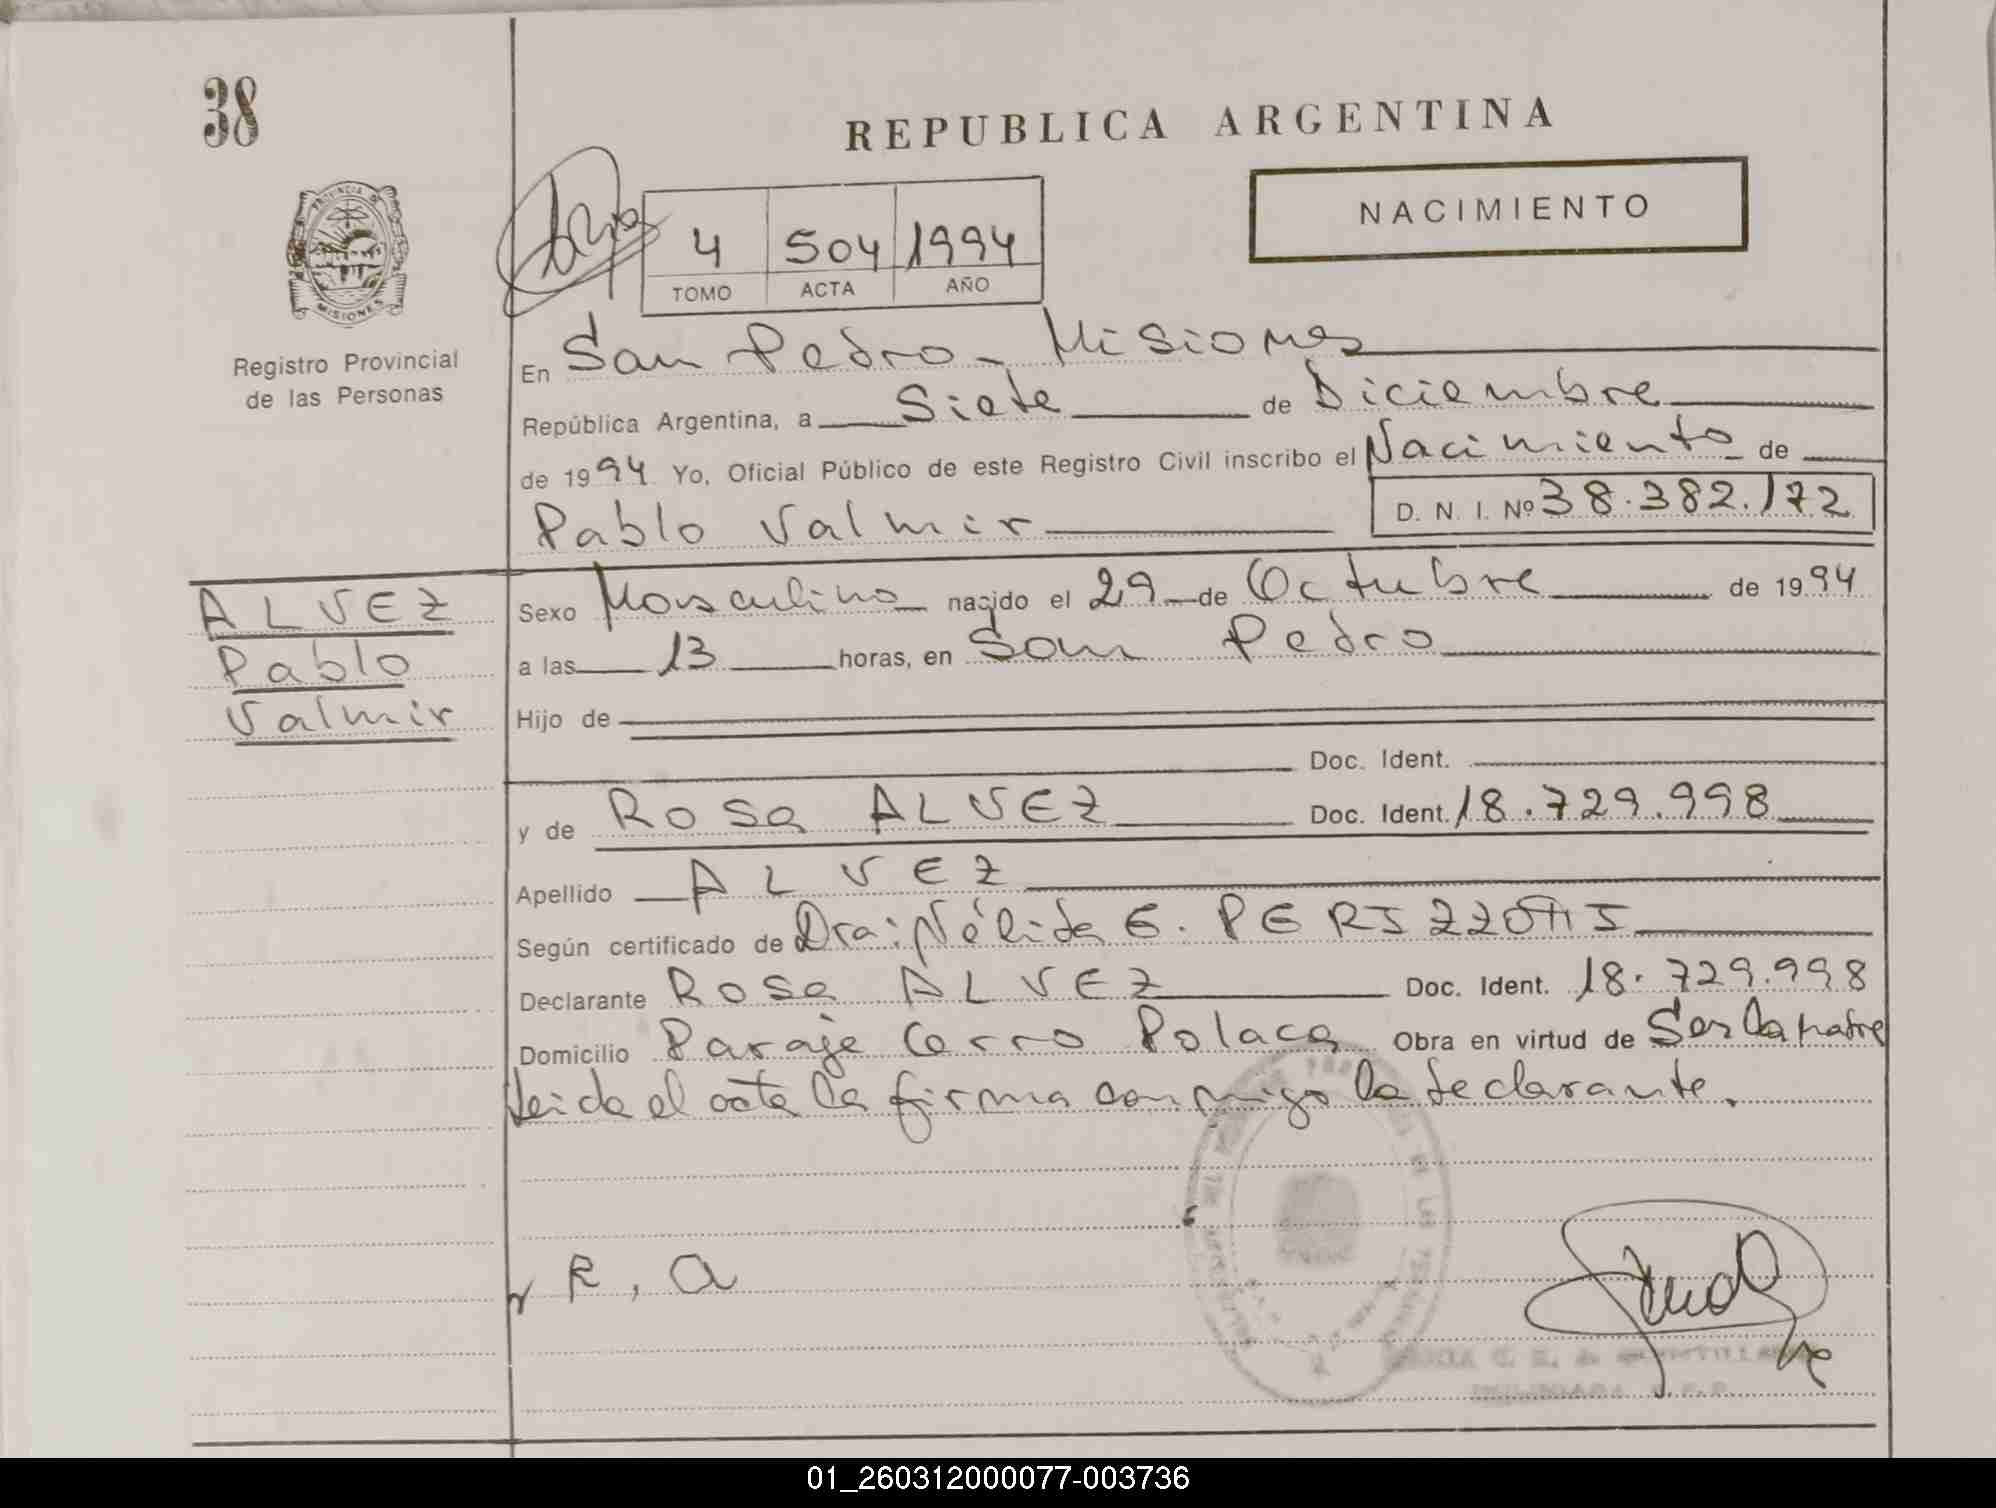 38
REPUBLICA ARGENTINA
NACIMIENTO
4 504 1994
TOMO ACTA AÑO
PROVINCIA DE
MISIONES
Registro Provincial
de las Personas
En San Pedro - Misiones
República Argentina, a Siete de Diciembre
de 1994 Yo, Oficial Público de este Registro Civil inscribo el Nacimiento de
Pablo Valmir D. N. I. Nº 38.382.172
ALVEZ
Pablo
Valmir
Sexo Masculino nacido el 29 de Octubre de 1994
a las 13 horas, en San Pedro
Hijo de
Doc. Ident.
y de Rosa ALVEZ Doc. Ident. 18.729.998
Apellido ALVEZ
Según certificado de Dra: Nélida E.
Declarante Rosa ALVEZ Doc. Ident. 18.729.998
Domicilio Paraje Cerro Polaca Obra en virtud de Ser la madre
leida el acta la firma conmigo la declarante.
R, a
01_260312000077-003736